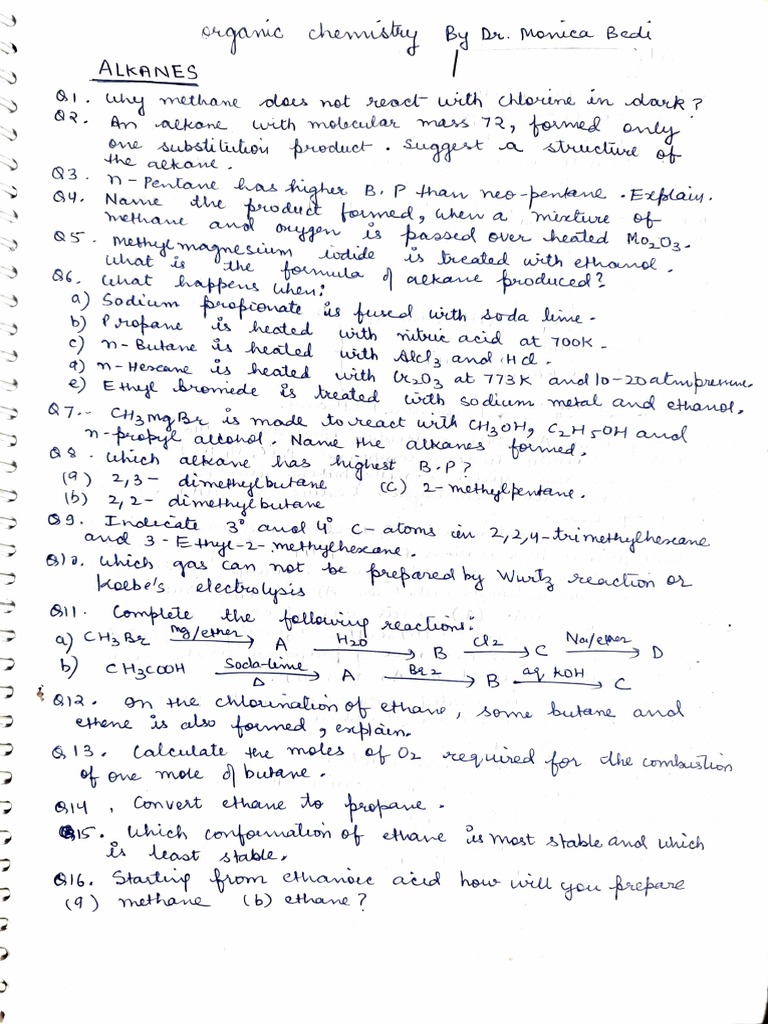 organic chemistry By Dr. Monica Bedi
ALKANES
Q1. Why methane does not react with chlorine in dark?
Q2. An alkane with molecular mass 72, formed only
one substitution product. Suggest a structure of
the alkane.
Q3. n-Pentane has higher B.P than neo-pentane. Explain.
Q4. Name the product formed, when a mixture of
methane and oxygen is passed over heated Mo2O3.
Q5. Methyl magnesium iodide is treated with ethanol.
What is the formula of alkane produced?
Q6. What happens when:
a) Sodium propionate is fused with soda lime.
b) Propane is heated with nitric acid at 700K.
c) n-Butane is heated with AlCl3 and HCl.
d) n-Hexane is heated with Cr2O3 at 773K and 10-20 atm pressure.
e) Ethyl bromide is treated with sodium metal and ethanol.
Q7.- CH3MgBr is made to react with CH3OH, C2H5OH and
n-propyl alcohol. Name the alkanes formed.
Q8. Which alkane has highest B.P?
(a) 2,3- dimethylbutane (c) 2-methylpentane.
(b) 2,2- dimethylbutane
Q9. Indicate 3° and 4° C-atoms in 2,2,4-trimethylhexane
and 3-Ethyl-2-methylhexane.
Q10. Which gas can not be prepared by Wurtz reaction or
Kolbe's electrolysis
Q11. Complete the following reactions:
a) CH3Br Mg/ether → A H2O → B Cl2 → C Na/ether → D
b) CH3COOH Soda-lime Δ → A Br2 → B aq KOH → C
Q12. On the chlorination of ethane, some butane and
ethene is also formed, explain.
Q13. Calculate the moles of O2 required for the combustion
of one mole of butane.
Q14. Convert ethane to propane.
Q15. Which conformation of ethane is most stable and which
is least stable.
Q16. Starting from ethanoic acid how will you prepare
(a) methane (b) ethane?